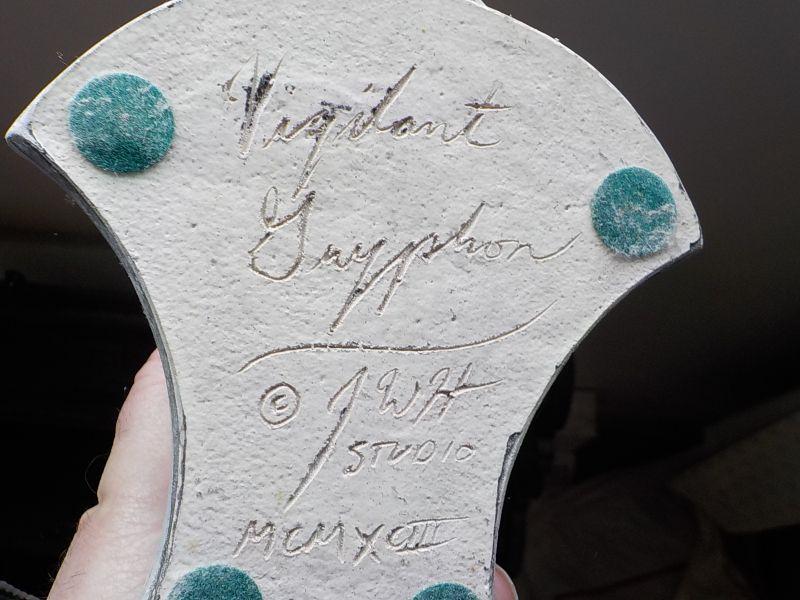 Vigilant
Gryphon
© JWH
STUDIO
MCMXCIII